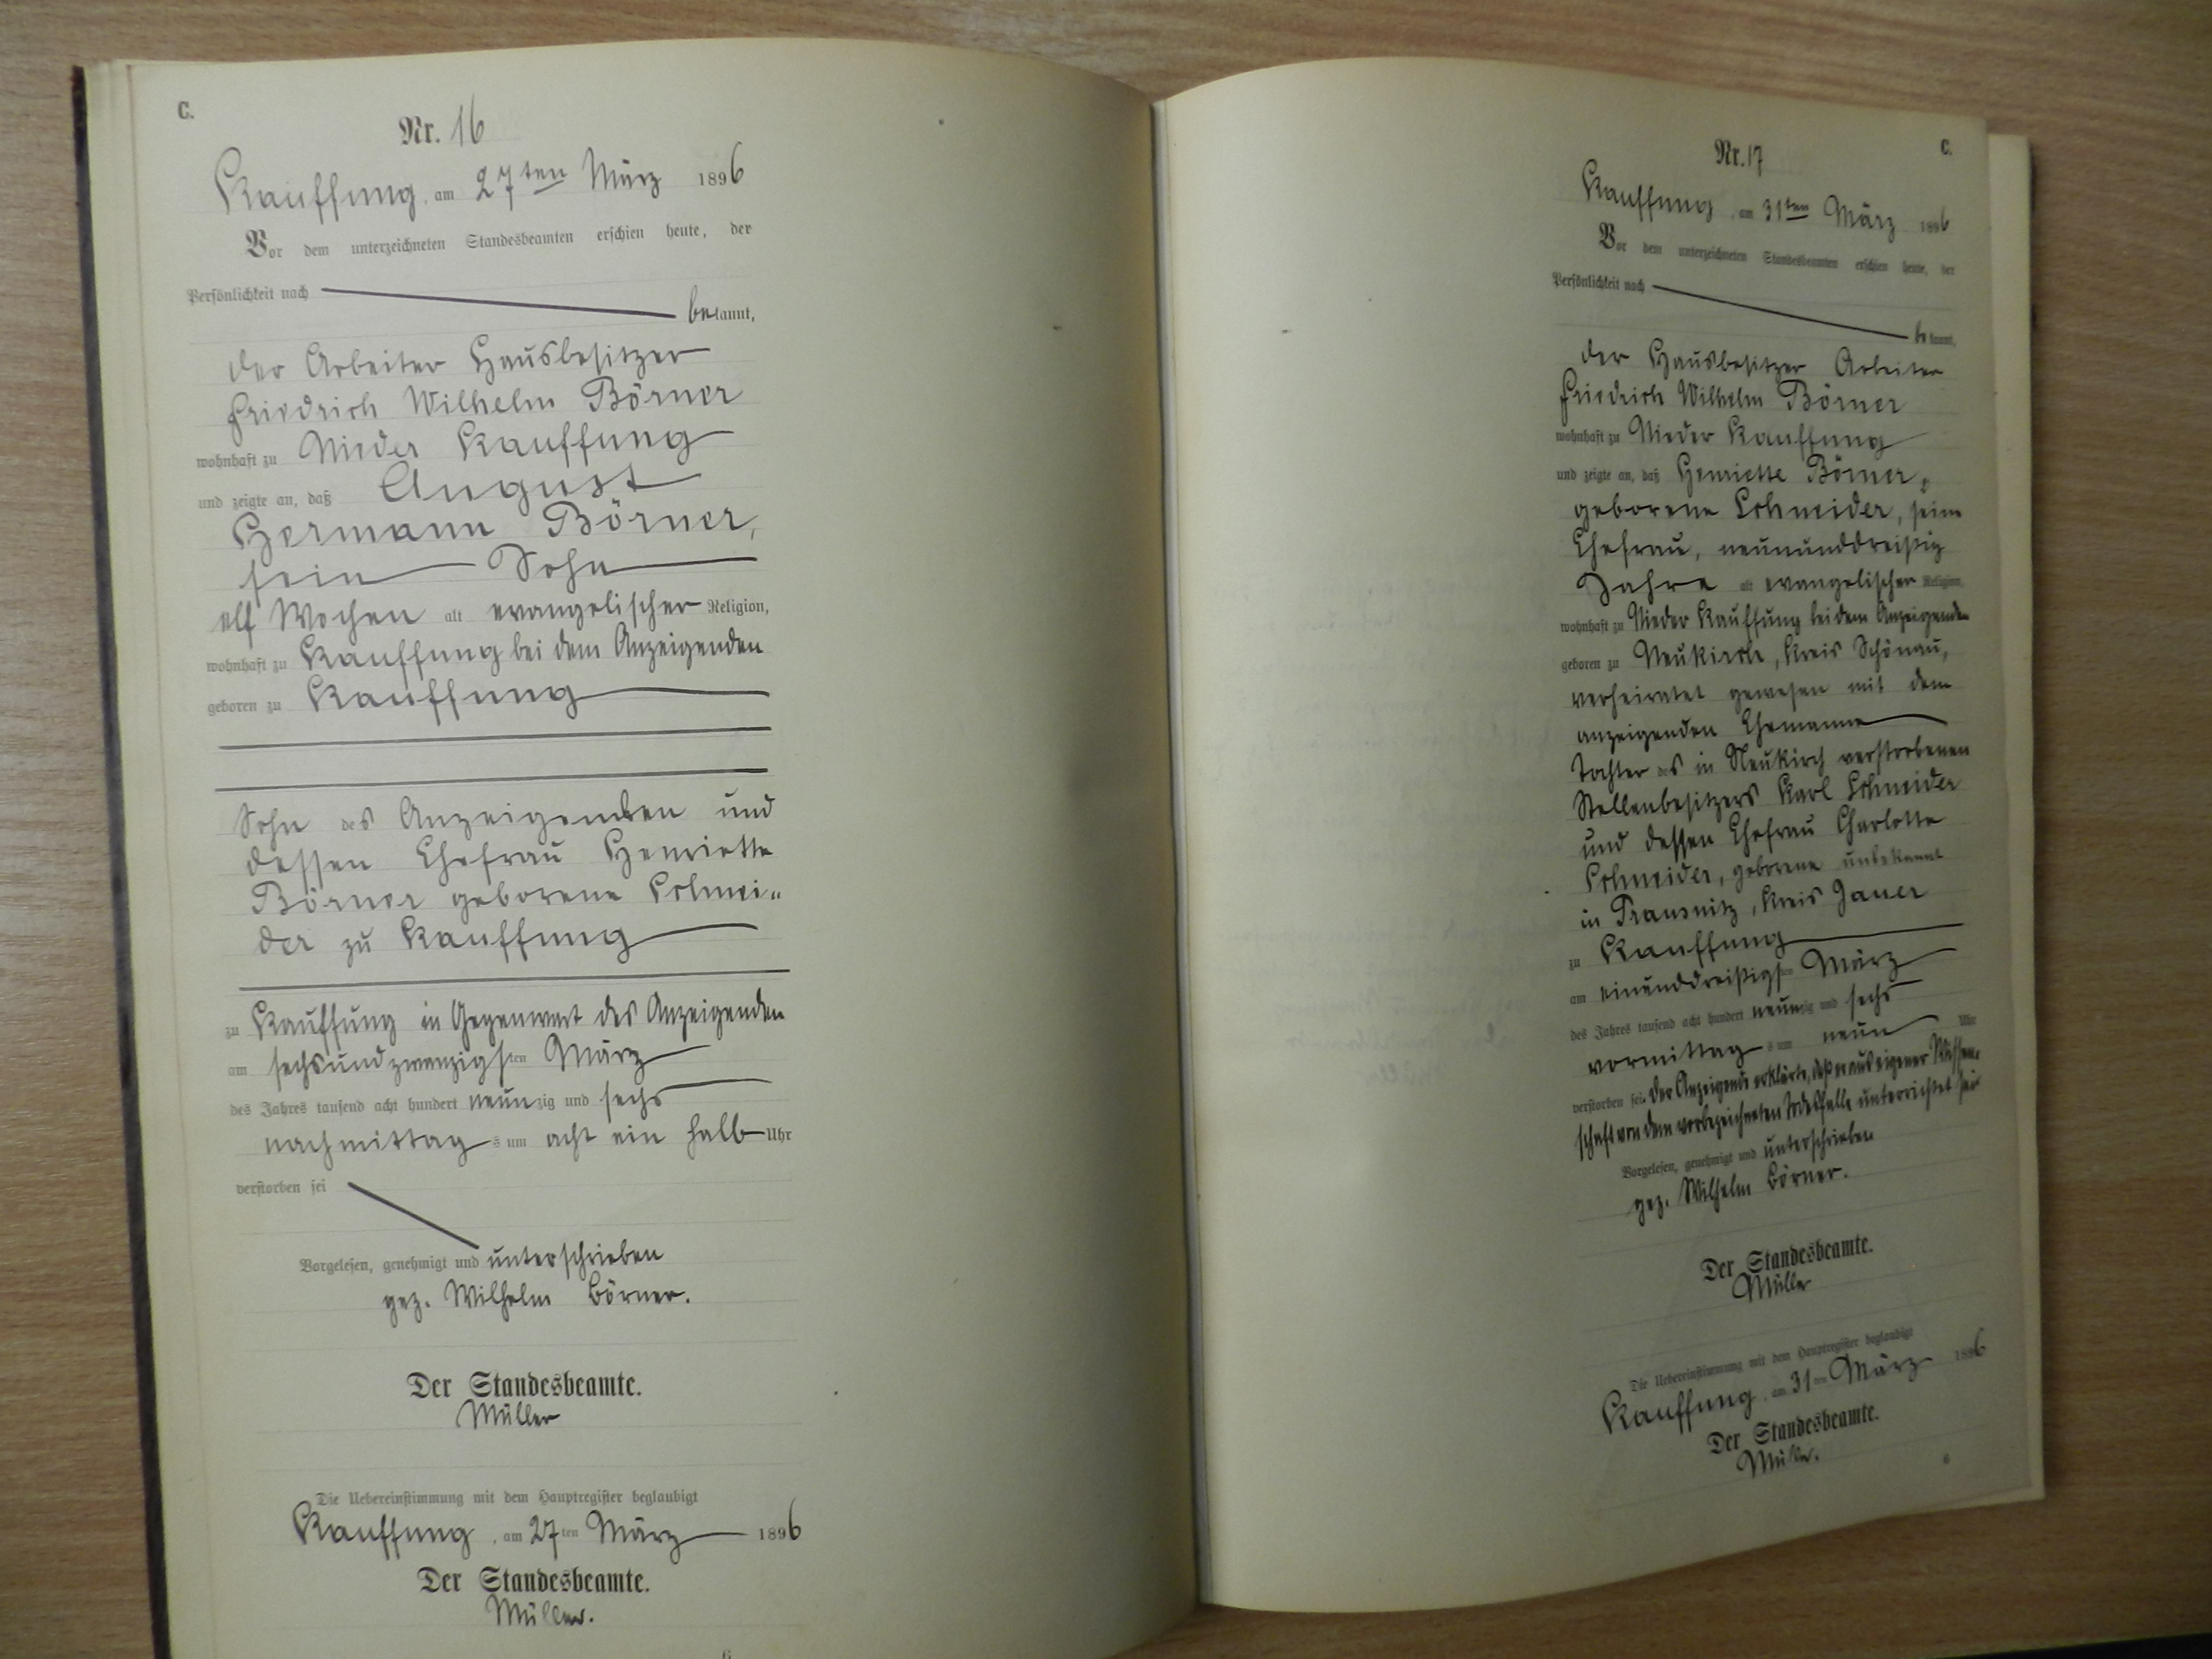 C.
Nr. 16
Kauffung, am 27ten März 1896
Vor dem unterzeichneten Standesbeamten erschien heute, der
Persönlichkeit nach
bekannt,
der Arbeiter Hausbesitzer
Friedrich Wilhelm Börner
wohnhaft zu Nieder Kauffung
und zeigte an, daß August
Hermann Börner,
sein Sohn
elf Wochen alt evangelischer Religion,
wohnhaft zu Kauffung bei dem Anzeigenden
geboren zu Kauffung
Sohn des Anzeigenden und
dessen Ehefrau Henriette
Börner geborene Schnei„
der zu Kauffung
zu Kauffung in Gegenwart des Anzeigenden
am sechsundzwanzigsten März
des Jahres tausend acht hundert neunzig und sechs
nachmittags um acht ein halb Uhr
verstorben sei
Vorgelesen, genehmigt und unterschrieben
gez. Wilhelm Börner.
Der Standesbeamte.
Müller
Die Uebereinstimmung mit dem Hauptregister beglaubigt
Kauffung, am 27ten März 1896
Der Standesbeamte.
Müller.
6
Nr. 17
C.
Kauffung, am 31ten März 1896
Vor dem unterzeichneten Standesbeamten erschien heute, der
Persönlichkeit nach
bekannt,
der Hausbesitzer Arbeiter
Friedrich Wilhelm Börner
wohnhaft zu Nieder Kauffung
und zeigte an, daß Henriette Börner,
geborene Schneider, seine
Ehefrau, neununddreißig
Jahre alt evangelischer Religion,
wohnhaft zu Nieder Kauffung bei dem Anzeigenden
geboren zu Neukirch, Kreis Schönau,
verheiratet gewesen mit dem
anzeigenden Ehemanne
Tochter des in Neukirch verstorbenen
Stellenbesitzers Karl Schneider
und dessen Ehefrau Charlotte
Schneider, geborene unbekannt
in Prausnitz, Kreis Jauer
zu Kauffung
am einunddreißigsten März
des Jahres tausend acht hundert neunzig und sechs
vormittags um neun Uhr
verstorben sei. Der Anzeigende erklärte, daß er aus eigener Wissen„
schaft von dem vorbezeichneten Todesfalle unterrichtet sei
Vorgelesen, genehmigt und unterschrieben
gez. Wilhelm Börner.
Der Standesbeamte.
Müller
Die Uebereinstimmung mit dem Hauptregister beglaubigt
Kauffung, am 31ten März 1896
Der Standesbeamte.
Müller.